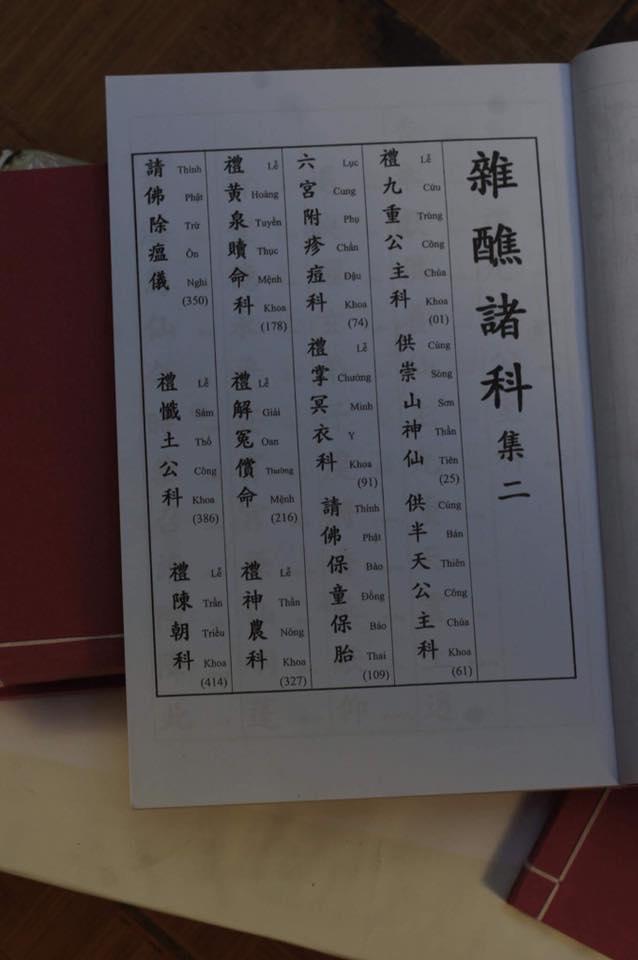 雜醮諸科集二
禮九重公主科
Lễ Cửu Trùng Công Chúa Khoa (01)
供崇山神仙
Cúng Sòng Sơn Thần Tiên (25)
供半天公主科
Cúng Bán Thiên Công Chúa Khoa (61)
六宮附疹痘科
Lục Cung Phụ Chẩn Đậu Khoa (74)
禮掌冥衣科
Lễ Chưởng Minh Y Khoa (91)
請佛保童保胎
Thỉnh Phật Bảo Đồng Bảo Thai (109)
禮黃泉贖命科
Lễ Hoàng Tuyền Thục Mệnh Khoa (178)
禮解冤償命
Lễ Giải Oan Thường Mệnh (216)
禮神農科
Lễ Thần Nông Khoa (327)
請佛除瘟儀
Thỉnh Phật Trừ Ôn Nghi (350)
禮懺土公科
Lễ Sám Thổ Công Khoa (386)
禮陳朝科
Lễ Trần Triều Khoa (414)